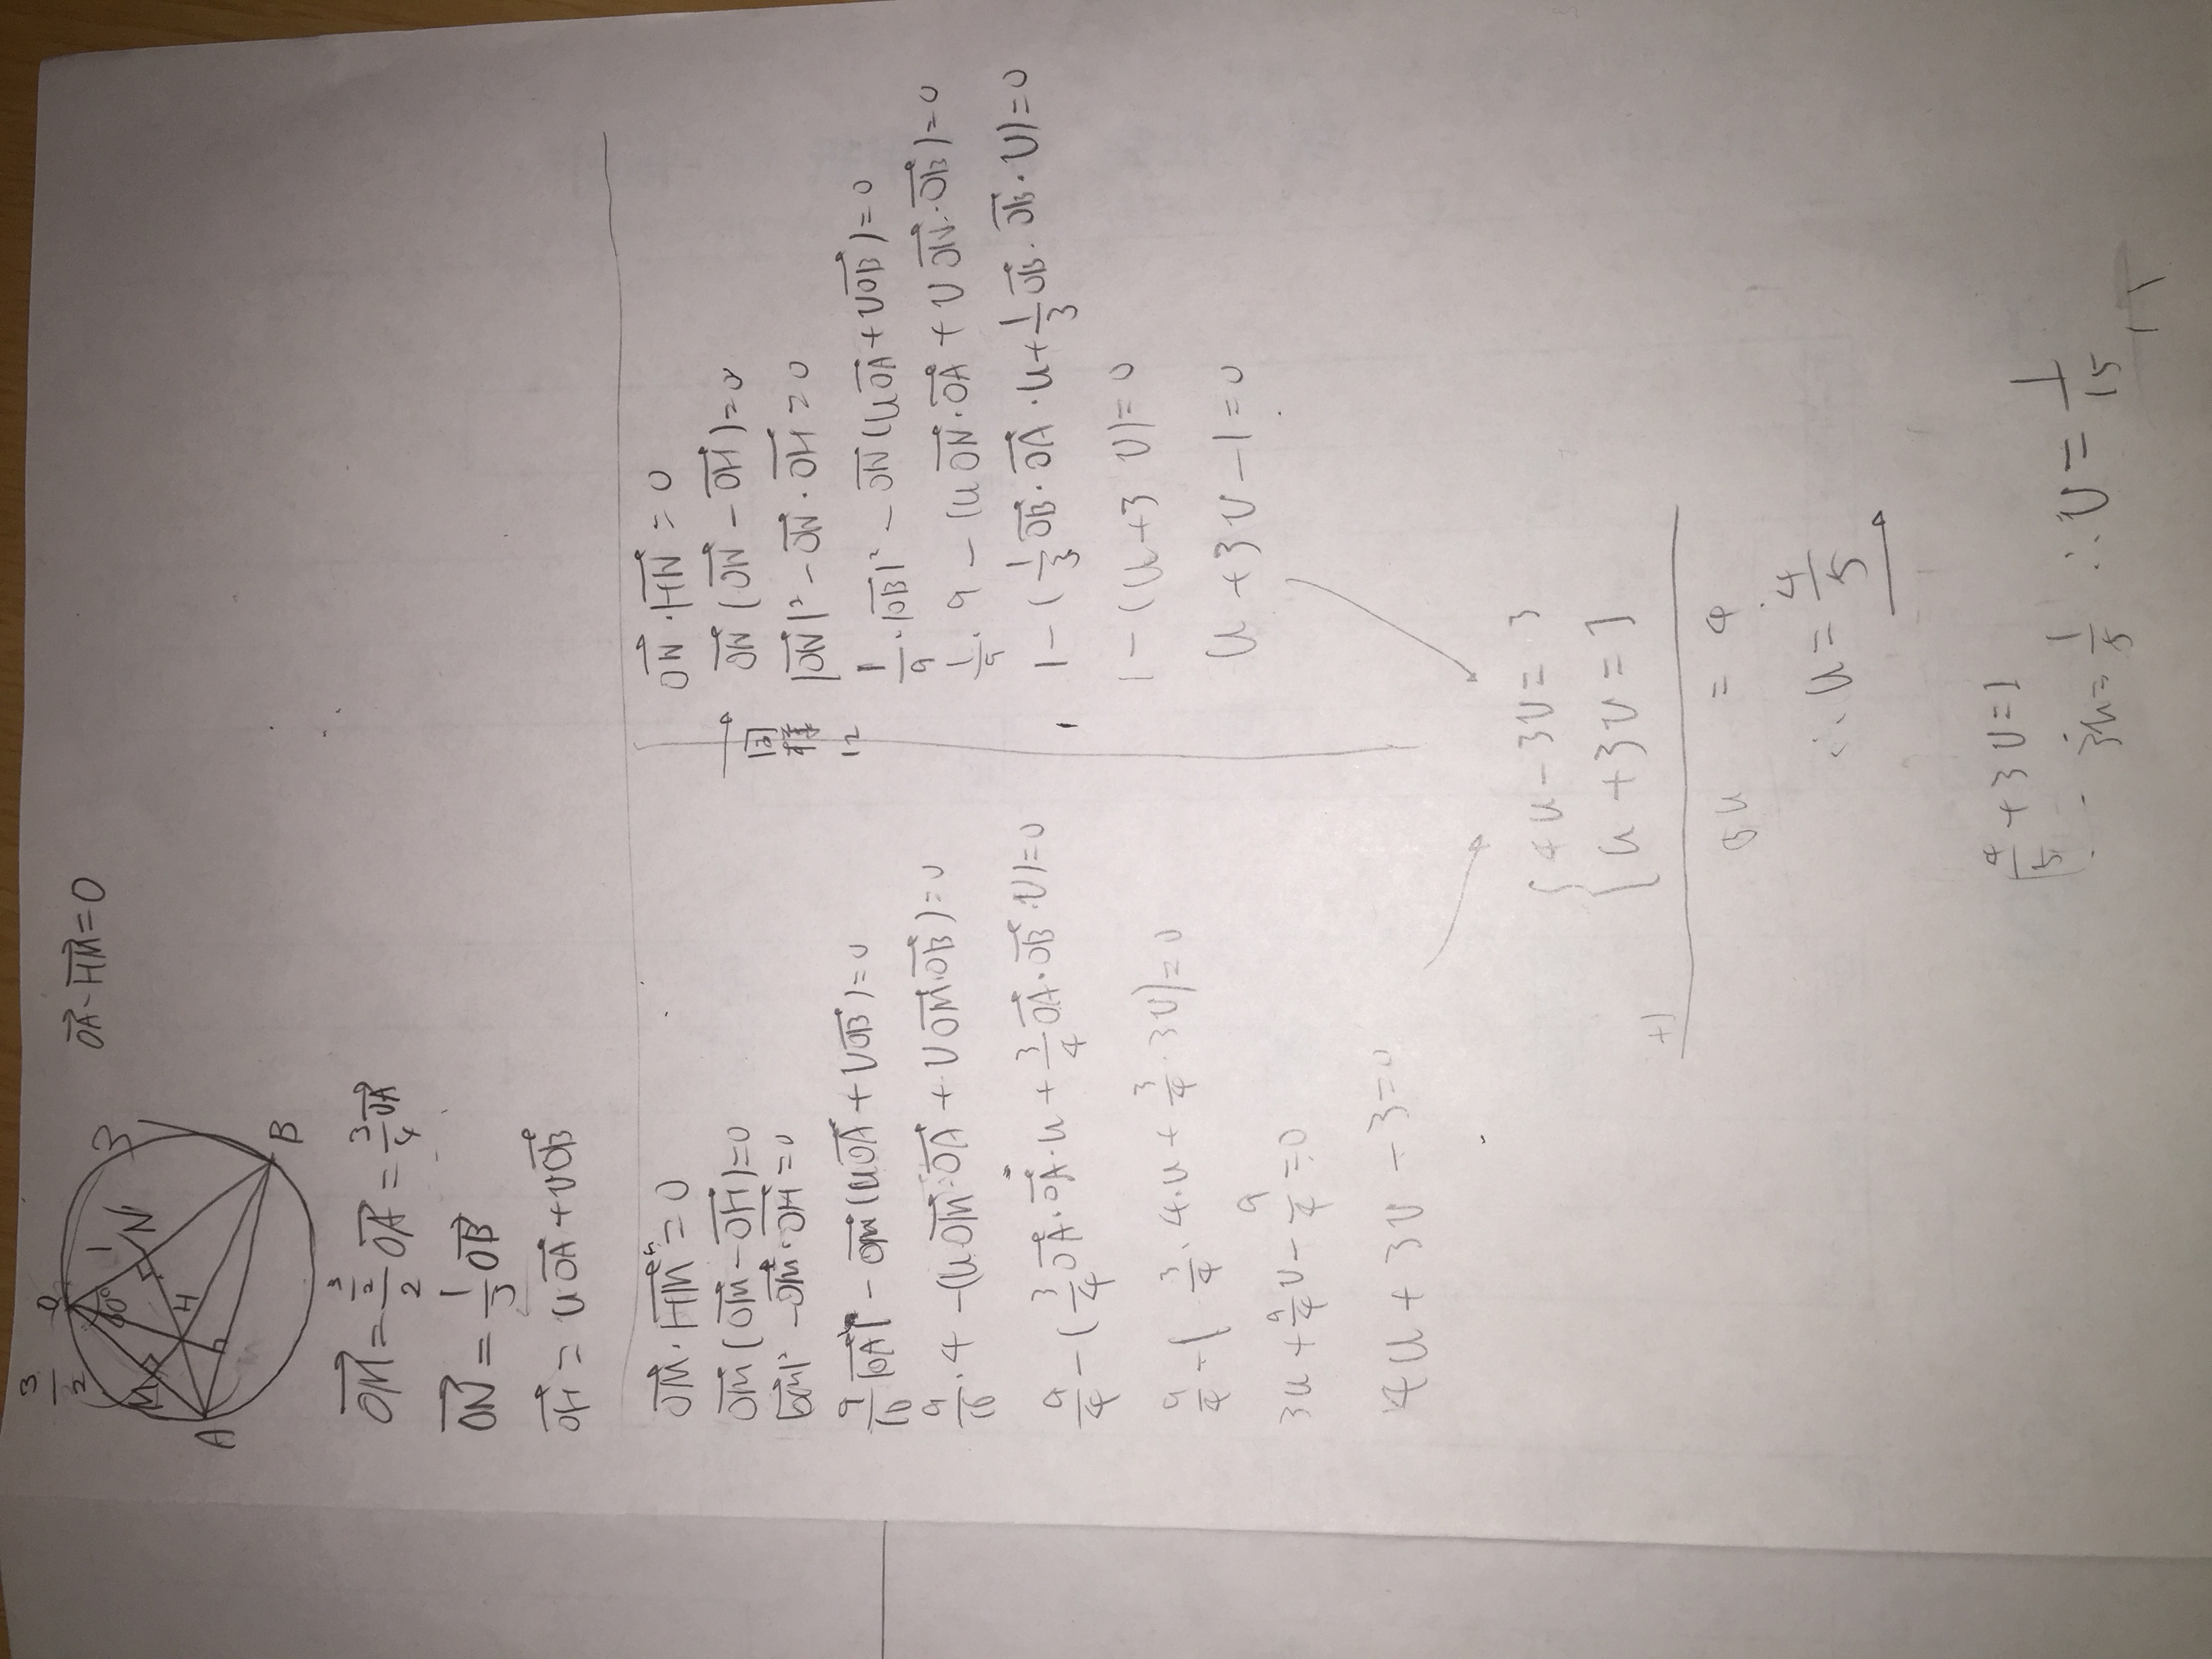 3/2
O
3
1
60°
M
N
H
A
B
\vec{OA}·\vec{HM}=0
\vec{OM}=\frac{\frac{3}{2}}{2}\vec{OA}=\frac{3}{4}\vec{OA}
\vec{ON}=\frac{1}{3}\vec{OB}
\vec{OH}=u\vec{OA}+v\vec{OB}
\vec{OM}·\vec{HM}=0
\vec{OM}(\vec{OM}-\vec{OH})=0
|\vec{OM}|²-\vec{OM}·\vec{OH}=0
\frac{9}{16}|\vec{OA}|²-\vec{OM}(u\vec{OA}+v\vec{OB})=0
\frac{9}{16}·4-(u\vec{OM}·\vec{OA}+v\vec{OM}·\vec{OB})=0
\frac{9}{4}-(\frac{3}{4}\vec{OA}·\vec{OA}·u+\frac{3}{4}\vec{OA}·\vec{OB}·v)=0
\frac{9}{4}-(\frac{3}{4}·4·u+\frac{3}{4}·3v)=0
3u+\frac{9}{4}v-\frac{9}{4}=0
4u+3v-3=0
同様に
\vec{ON}·\vec{HN}=0
\vec{ON}(\vec{ON}-\vec{OH})=0
|\vec{ON}|²-\vec{ON}·\vec{OH}=0
\frac{1}{9}·|\vec{OB}|²-\vec{ON}(u\vec{OA}+v\vec{OB})=0
\frac{1}{9}·9-(u\vec{ON}·\vec{OA}+v\vec{ON}·\vec{OB})=0
1-(\frac{1}{3}\vec{OB}·\vec{OA}·u+\frac{1}{3}\vec{OB}·\vec{OB}·v)=0
1-(u+3v)=0
u+3v-1=0
4u-3v=3
u+3v=1
+)
5u=4
∴u=\frac{4}{5}
\frac{4}{5}+3v=1
3u=\frac{1}{5} ∴v=\frac{1}{15}